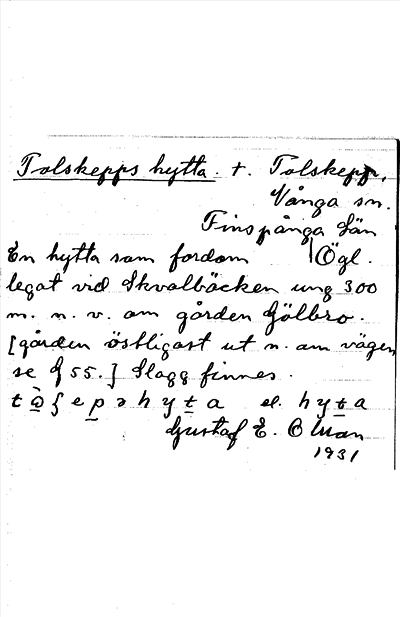 Tolskepps hytta. t. Tolskepp,
Vånga sn.
Finspånga län
En hytta som fordom Ögl.
legat vid Skvalbäcken ung 300
m. n. v. om gården Gölbro.
[gården östligast ut n. om vägen
se § 55.] Slagg finnes.
hyta el. hyta
Gustaf E. Olman
1931